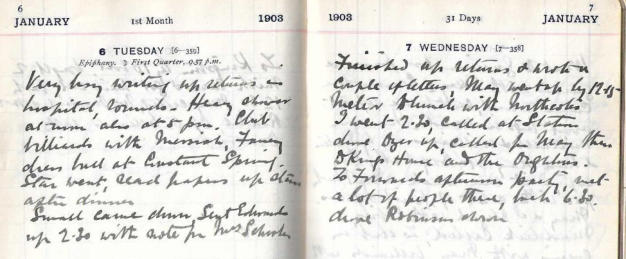 6
JANUARY 1st Month 1903
6 TUESDAY [6—359]
Epiphany. ☽ First Quarter, 9.37 p.m.
Very busy writing up returns in
hospital, rounds. Heavy shower
at noon also at 5 pm. Club
billiards with Fancy
dress ball at Constant Spring.
went, read papers up
after dinner
Small came down, Sergt Edwards
up 2.30 with note for Mrs
1903 31 Days JANUARY
7
7 WEDNESDAY [7—358]
Finished up returns & wrote a
couple of letters, May went up by 12.15
& lunch with
I went 2.30, called at Station
drove up, called for May then
Kings House and the
To afternoon party, met
a lot of people there, back 6.30.
drove Robinson down